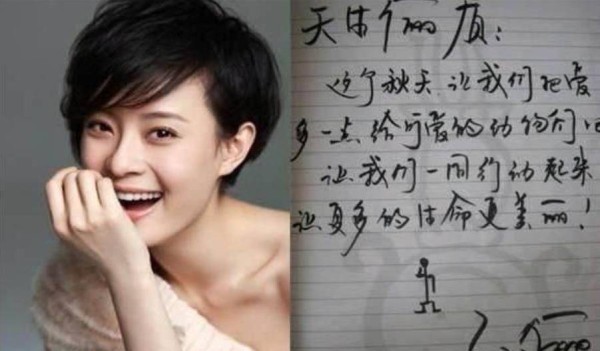 天生俪质：
这个秋天让我们把爱
多一点给可爱的动物们吧
让我们一同行动起来
让更多的生命更美丽！